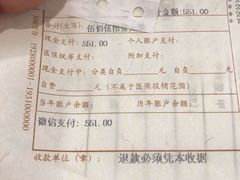 金额:551.00
合计(大写): 伍佰伍拾壹
现金支付:551.00 个人账户支付:
医保统筹支付: 附加支付:
现金支付中: 分类自负 自负
自费 元 (不属于医保报销范围)
当年账户余额: 历年账户余额:
微信支付:551.00
收款单位(章): 退款必须凭本收据